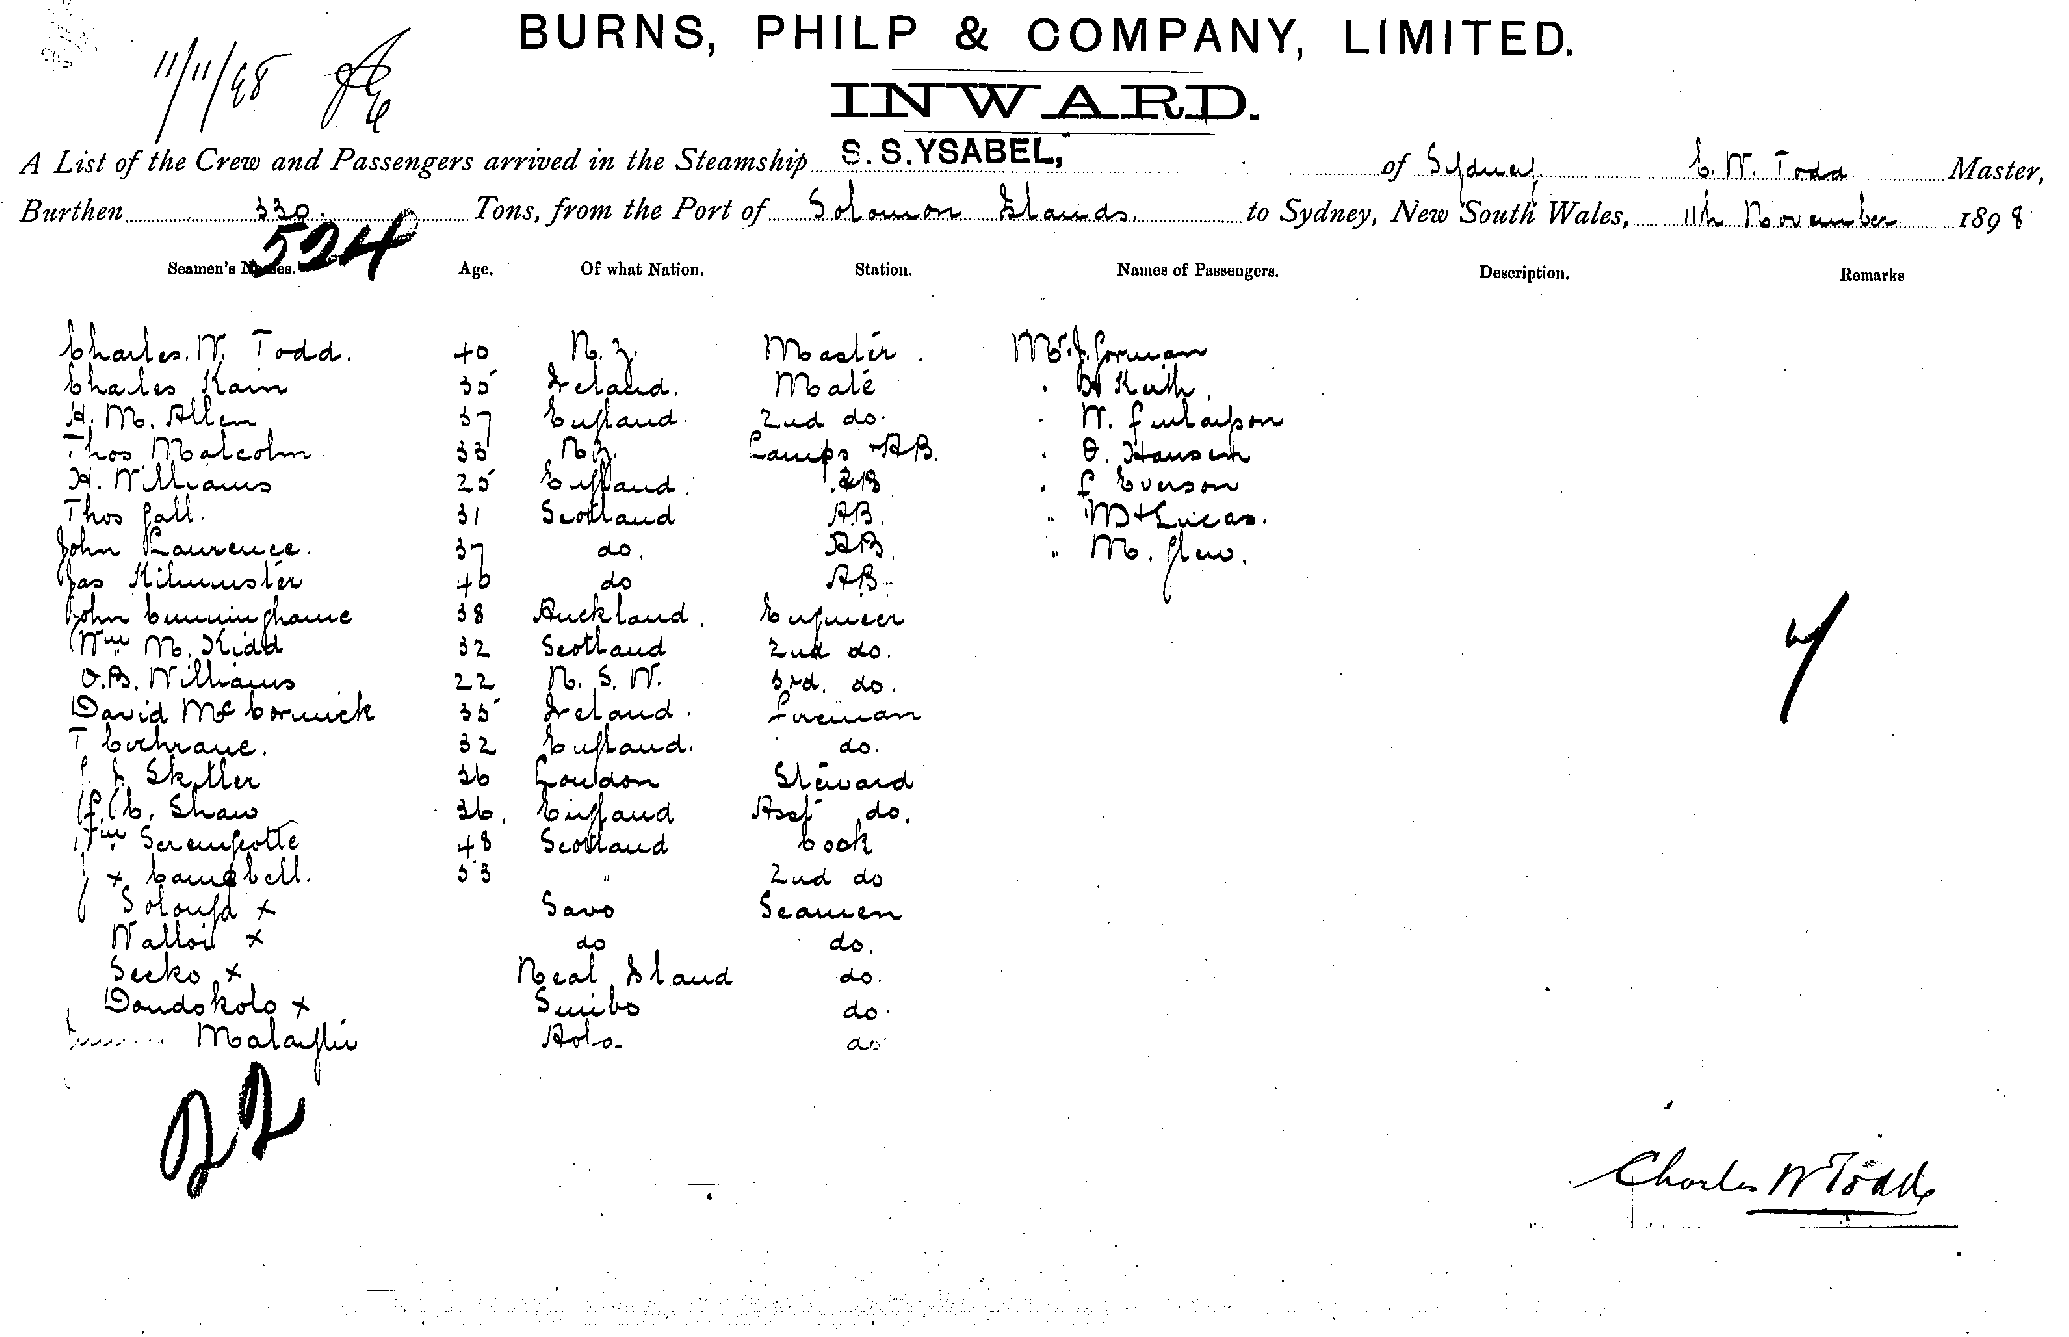 BURNS, PHILP & COMPANY, LIMITED.
11/11/98
INWARD.
A List of the Crew and Passengers arrived in the Steamship S.S. YSABEL, of Sydney, C. W. Todd Master,
Burthen 330. Tons, from the Port of Solomon Islands. to Sydney, New South Wales, 11th November 1898
524
Seamen's Names. Age. Of what Nation. Station. Names of Passengers. Description. Remarks
Charles. W. Todd. 40 N. Z. Master. Mr. J. Gorman
Charles Kain 35 Ireland. Mate " Keith.
H. M. Allen 37 England 2nd do. " W. Finlaison
Thos Malcolm 33 N Z. Lamps + AB. " O. Hansen
H. Williams 25 England. AB " F Everson
Thos Gall. 31 Scotland AB. " Lucas.
John Laurence. 37 do. AB. " M. Glew.
Jas Kilminster 40 do AB.
John Cunninghame 38 Auckland. Engineer
Wm M. Kidd 32 Scotland 2nd do.
O. B. Williams 22 N. S. W. 3rd. do.
David McCormick 35 Ireland. Fireman
T Cochrane. 32 England. do.
J. Skiller 36 London Steward
F. C. Shaw 36. England Asst do.
Wm 48 Scotland Cook
J x Campbell. 53 " 2nd do
x Savo Seamen
x do do.
Seeko x Neal Island do.
Dondokolo x Simbo do.
Aola do
7
22
Charles W Todd